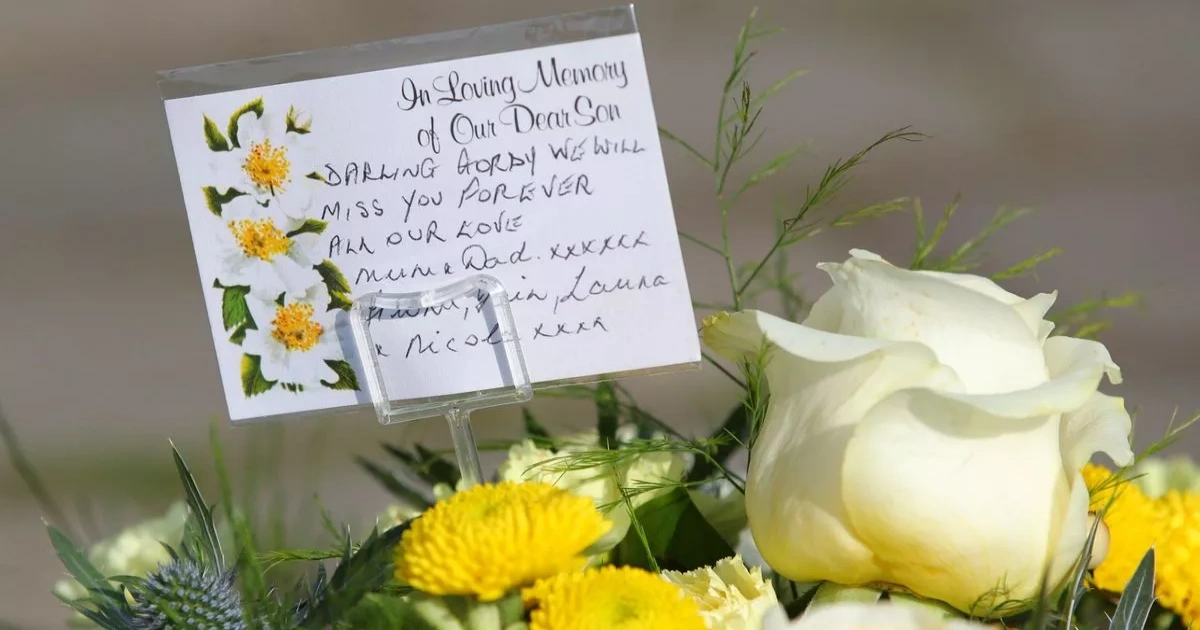 In Loving Memory
of Our Dear Son
DARLING GORDY WE WILL
MISS YOU FOREVER
ALL OUR LOVE
MUM & Dad. xxxxxx
Laura
& Nicola xxxx